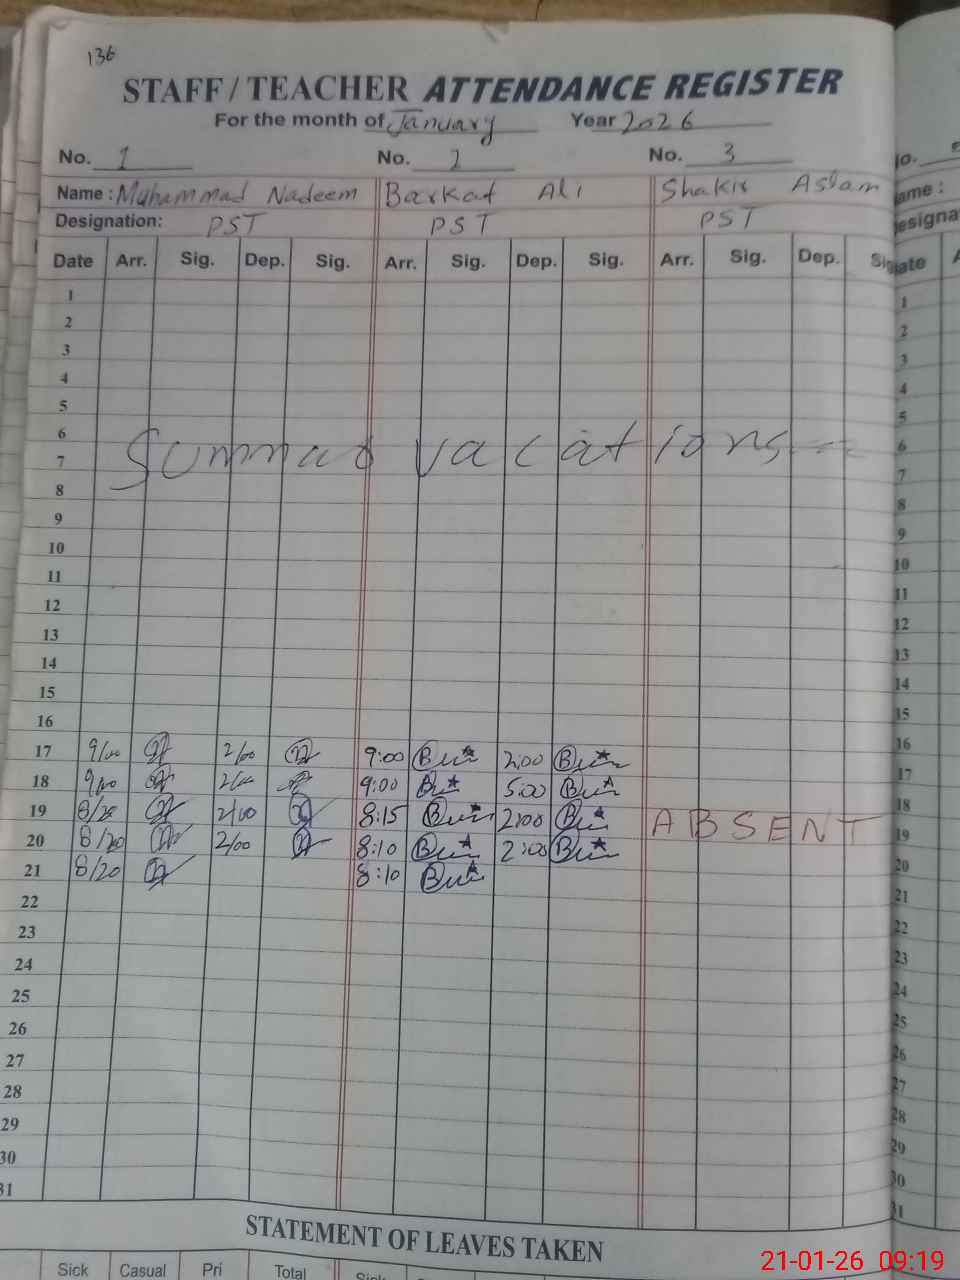 136
STAFF / TEACHER ATTENDANCE REGISTER
For the month of January Year 2026
No. 1 No. 2 No. 3
Name : Muhammad Nadeem Barkat Ali Shakir Aslam
Designation: PST PST PST
Date Arr. Sig. Dep. Sig. Arr. Sig. Dep. Sig. Arr. Sig. Dep. Sig
1
2
3
4
5
6
7 Summar vacations
8
9
10
11
12
13
14
15
16
17 9/00 2/00 9:00 2:00
18 9/00 2/00 9:00 5:00
19 8/20 2/00 8:15 2:00 ABSENT
20 8/20 2/00 8:10 2:00
21 8/20 8:10
22
23
24
25
26
27
28
29
30
31
STATEMENT OF LEAVES TAKEN
Sick Casual Pri Total Sick
21-01-26 09:19